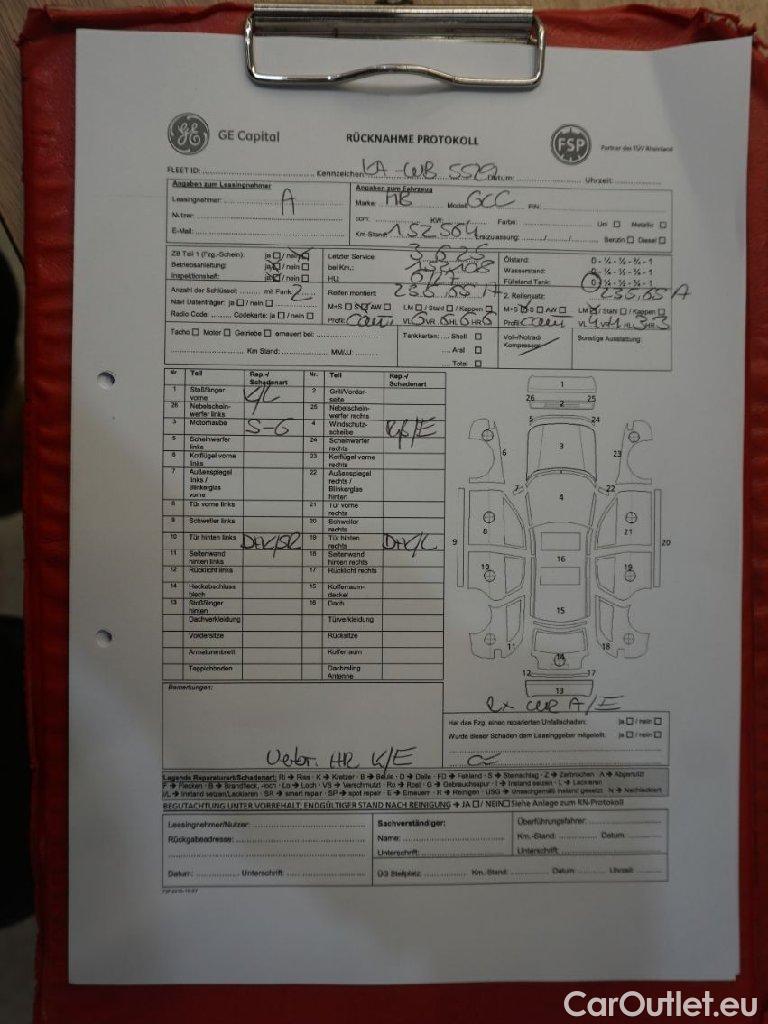 GE Capital
RÜCKNAHME PROTOKOLL
FSP
Partner des TÜV Rheinland
FLEET ID: Kennzeichen WB 5529 Datum: Uhrzeit:
Angaben zum Leasingnehmer
Angaben zum Fahrzeug
Leasingnehmer: A
Marke: MB Modell: GLC FIN:
Nutzer:
KW: Farbe: Uni Metallic
E-Mail:
Km-Stand: 152504 Erstzulassung: Benzin Diesel
ZB Teil 1 (Fzg.-Schein): ja / nein
Letzter Service
Ölstand: 0 - ¼ - ½ - ¾ - 1
Betriebsanleitung: ja / nein
bei Km.:
Wasserstand: 0 - ¼ - ½ - ¾ - 1
Inspektionsheft: ja / nein
HU:
Füllstand Tank: 0 - ¼ - ½ - ¾ - 1
Anzahl der Schlüssel: mit Funk: 2
Reifen montiert:
2. Reifensatz:
Navi Datenträger: ja / nein
M+S S AW LM / Stahl / Kappen
M+S S AW LM / Stahl / Kappen
Radio Code: Codekarte: ja / nein
Profil: VL 6 VR 6 HL 6 HR 6
Profil: VL 4 VR 4 HL 3 HR 3
Tacho Motor Getriebe erneuert bei:
Tankkarten: Shell
Voll-/Notrad/
Kompressor
Sonstige Ausstattung:
Km Stand: MW/J:
Aral
Total
Nr Teil Rep.-/ Schadenart Nr. Teil Rep.-/ Schadenart
1 Stoßfänger vorne K/L 2 Grill/Vorderseite
26 Nebelscheinwerfer links 25 Nebelscheinwerfer rechts
3 Motorhaube S-G 4 Windschutzscheibe
5 Scheinwerfer links 24 Scheinwerfer rechts
6 Kotflügel vorne links 23 Kotflügel vorne rechts
7 Außenspiegel links / Blinkerglas vorne 22 Außenspiegel rechts / Blinkerglas hinten
8 Tür vorne links 21 Tür vorne rechts
9 Schweller links 20 Schweller rechts
10 Tür hinten links 19 Tür hinten rechts
11 Seitenwand hinten links 18 Seitenwand hinten rechts
12 Rücklicht links 17 Rücklicht rechts
14 Heckabschlussblech 15 Kofferraumdeckel
13 Stoßfänger hinten 16 Dach
Dachverkleidung Türverkleidung
Vordersitze Rücksitze
Armaturenbrett Kofferraum
Teppichboden Dachreling Antenne
1
26 25
2
5 24
6 3 23
7 22
4
8 21
9 20
16
10 19
15
11 18
14
12 17
13
Bemerkungen:
HR K/E
A/E
Hat das Fzg. einen reparierten Unfallschaden: ja / nein
Wurde dieser Schaden dem Leasinggeber mitgeteilt: ja / nein
Legende Reparaturart/Schadenart: Ri → Riss - K → Kratzer - B → Beule - D → Delle - FD → Fehlend - S → Steinschlag - Z → Zerbrochen - A → Abgenutzt
BEGUTACHTUNG UNTER VORBEHALT: ENDGÜLTIGER STAND NACH REINIGUNG → JA / NEIN Siehe Anlage zum RN-Protokoll
Leasingnehmer/Nutzer:
Sachverständiger:
Überführungsfahrer:
Rückgabeadresse:
Name:
Km.-Stand: Datum
Unterschrift:
Unterschrift:
Datum: Unterschrift:
ÜG Stellplatz: Km.-Stand: Datum Uhrzeit
CarOutlet.eu